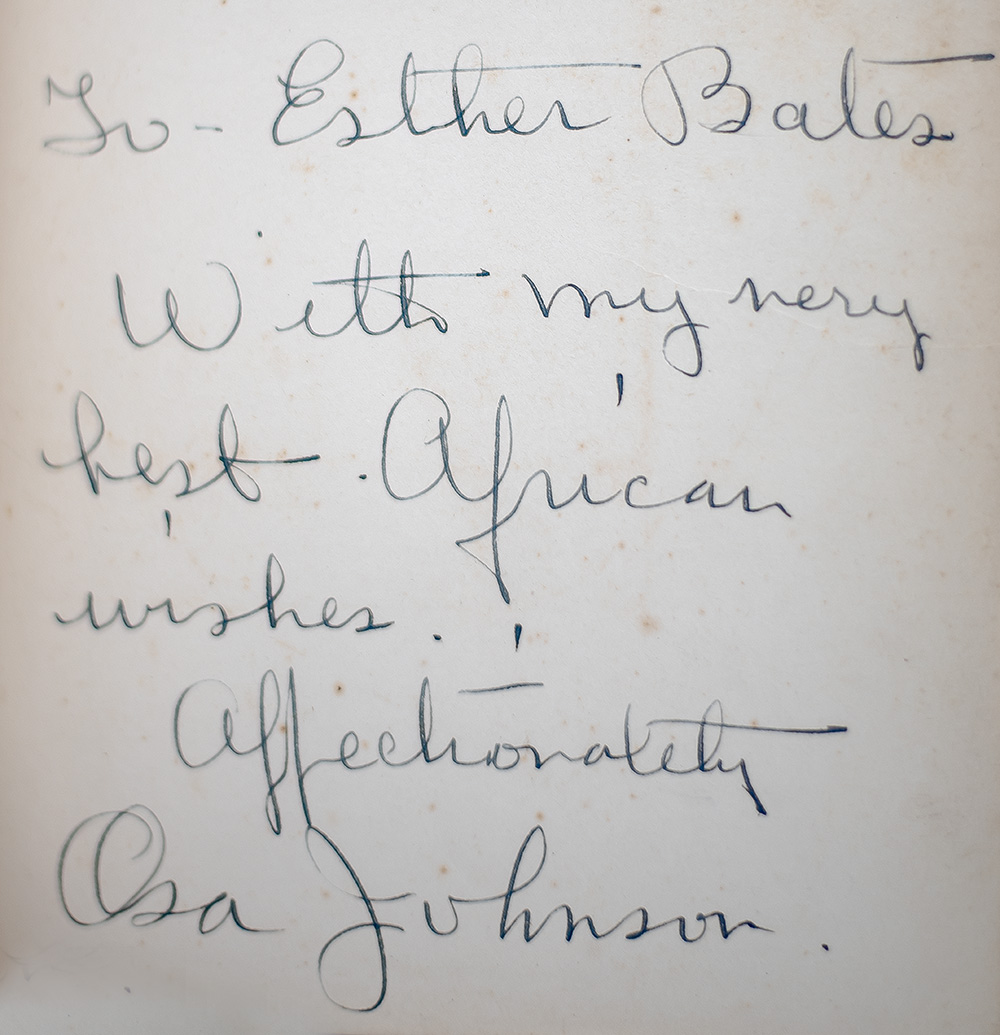 To - Esther Bates
With my very
best African
wishes.
Affectionately
Osa Johnson.